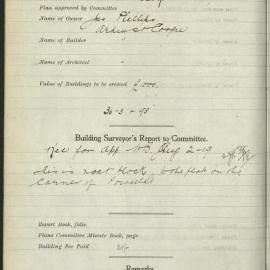 Plan approved by Committee
Name of Owner Jas Phillips
Arden St Coogee
Name of Builder "
Name of Architect "
Value of Buildings to be erected £1,000.
Building Surveyor's Report to Committee.
rec for app. Aug 2-19
this is next block to the flat on the
corner of
Report Book, folio
Plans Committee Minute Book, page
Building Fee Paid
Remarks